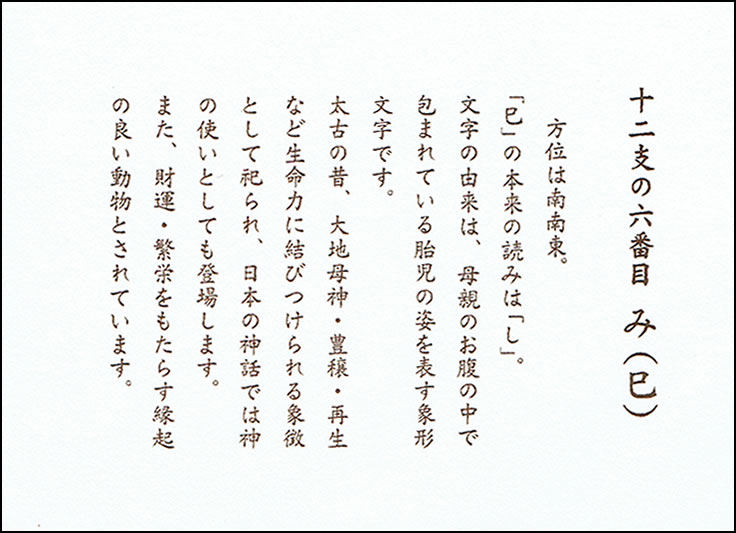 十二支の六番目 み(巳)
方位は南南東。
「巳」の本来の読みは「し」。
文字の由来は、母親のお腹の中で
包まれている胎児の姿を表す象形
文字です。
太古の昔、大地母神・豊穣・再生
など生命力に結びつけられる象徴
として祀られ、日本の神話では神
の使いとしても登場します。
また、財運・繁栄をもたらす縁起
の良い動物とされています。